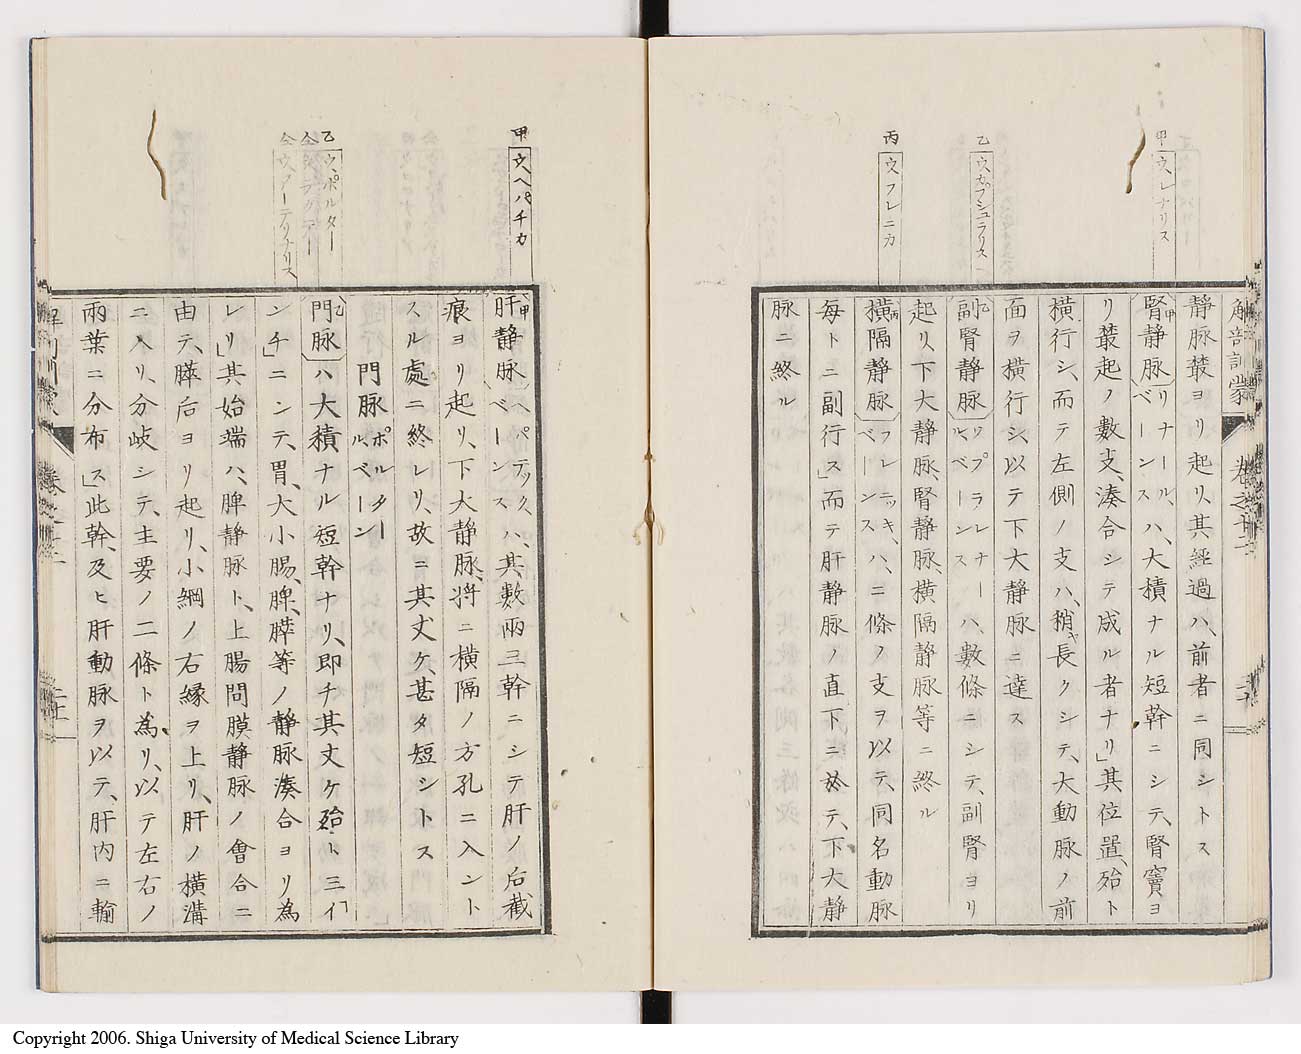 甲 ウ、レナリス
乙 ウ、カプシュラリス
丙 ウ、フレニカ
解剖訓蒙 卷之十二
靜脈叢ヨリ起リ、其經過ハ、前者ニ同シトス
腎靜脈 リナール、ベーンス ハ、大積ナル短幹ニシテ、腎竇ヨ
リ叢起ノ數支、湊合シテ成ル者ナリ」其位置、殆ト
橫行シ、而テ左側ノ支ハ、稍ヤ長クシテ、大動脈ノ前
面ヲ橫行シ、以テ下大靜脈ニ達ス
副腎靜脈 ソプラレナール、ベーンス ハ、數條ニシテ、副腎ヨリ
起リ、下大靜脈、腎靜脈、橫隔靜脈等ニ終ル
橫隔靜脈 フレニッキ、ベーンス ハ、二條ノ支ヲ以テ、同名動脈
每トニ副行ス」而テ肝靜脈ノ直下ニ於テ、下大靜
脈ニ終ル
甲 ウ、ヘパチカ
乙 ウ、ポルター
仝
仝 ウ、アーテリヲリス
肝靜脈 ヘパテック、ベーンス ハ、其數兩三幹ニシテ肝ノ后截
痕ヨリ起リ、下大靜脈、將ニ橫隔ノ方孔ニ入ント
スル處ニ終レリ、故ニ其丈ケ、甚タ短シトス
門脈 ポルタール、ベーン
門脈ハ大積ナル短幹ナリ、卽チ其丈ケ殆ト三イ
ンチ」ニシテ、胃、大小腸、脾、膵等ノ靜脈湊合ヨリ為
レリ」其始端ハ、脾靜脈ト、上腸間膜靜脈ノ會合ニ
由テ、膵后ヨリ起リ、小網ノ右緣ヲ上リ、肝ノ橫溝
ニ入リ、分岐シテ、主要ノ二條ト為リ、以テ左右ノ
兩葉ニ分布ス」此幹、及ヒ肝動脈ヲ以テ、肝内ニ輸
Copyright 2006. Shiga University of Medical Science Library